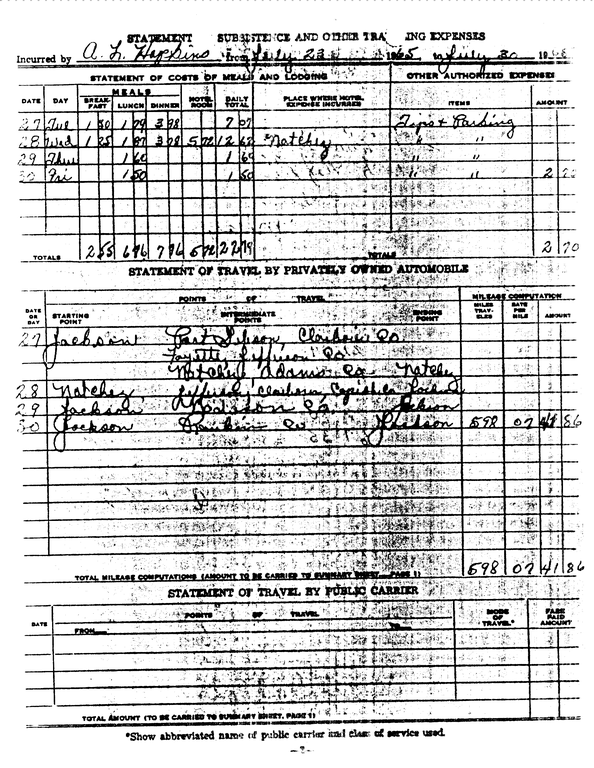 STATEMENT SUBSISTENCE AND OTHER TRA ING EXPENSES
Incurred by A. L. Hopkins from July 23 1965 July 30 19
STATEMENT OF COSTS OF MEALS AND LODGING OTHER AUTHORIZED EXPENSES
DATE DAY MEALS BREAK-FAST LUNCH DINNER HOTEL ROOM DAILY TOTAL PLACE WHERE HOTEL EXPENSE INCURRED ITEMS AMOUNT
27 Tue 1 30 1 79 3 98 7 07 Tips & Parking
28 Wed 1 25 1 87 3 78 5 72 12 62 Natchez " "
29 Thu 1 60 1 60 " "
30 Fri 1 50 1 50 " " 2 70
TOTALS 2 55 6 76 7 76 5 72 22 79 TOTALS 2 70
STATEMENT OF TRAVEL BY PRIVATELY OWNED AUTOMOBILE
DATE OR DAY POINTS OF TRAVEL MILEAGE COMPUTATION
STARTING POINT INTERMEDIATE POINTS ENDING POINT MILES TRAVELED RATE PER MILE AMOUNT
27 Jackson Port Gibson, Claiborne Co.
Fayette, Jefferson Co.
Natchez Adams Co. Natchez
28 Natchez Jefferson, Claiborne, Copiah Co. Jackson
29 Jackson Madison Co. Jackson
30 Jackson Rankin Co. Jackson 598 07 41 86
TOTAL MILEAGE COMPUTATIONS (AMOUNT TO BE CARRIED TO SUMMARY SHEET, PAGE 1) 598 07 41 86
STATEMENT OF TRAVEL BY PUBLIC CARRIER
DATE POINTS OF TRAVEL MODE OF TRAVEL* FARE PAID AMOUNT
FROM TO
TOTAL AMOUNT (TO BE CARRIED TO SUMMARY SHEET, PAGE 1)
*Show abbreviated name of public carrier and class of service used.